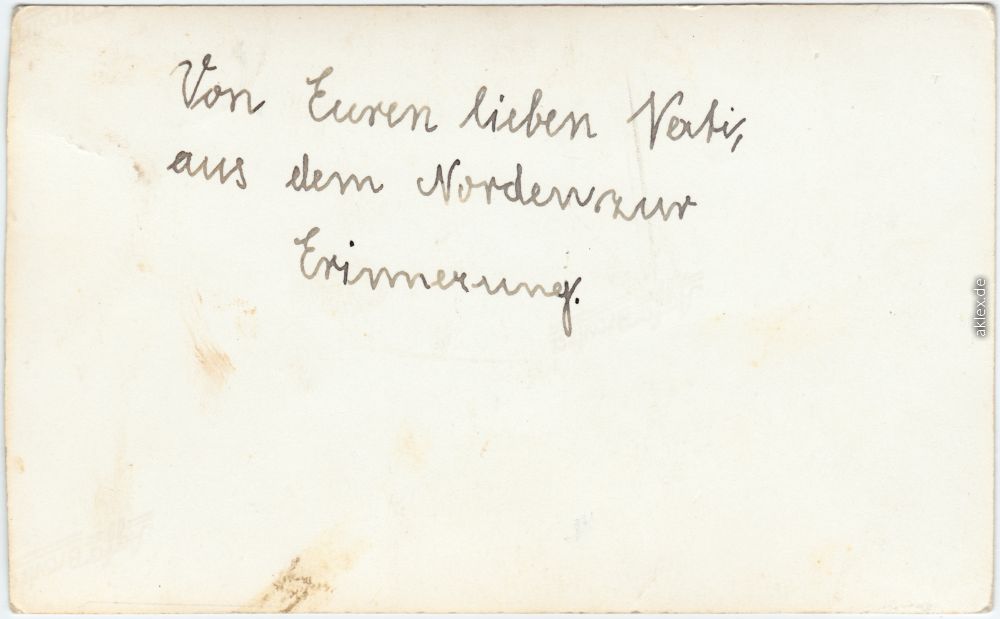 Von Euren lieben Vati,
aus dem Norden zur
Erinnerung.
aklex.de